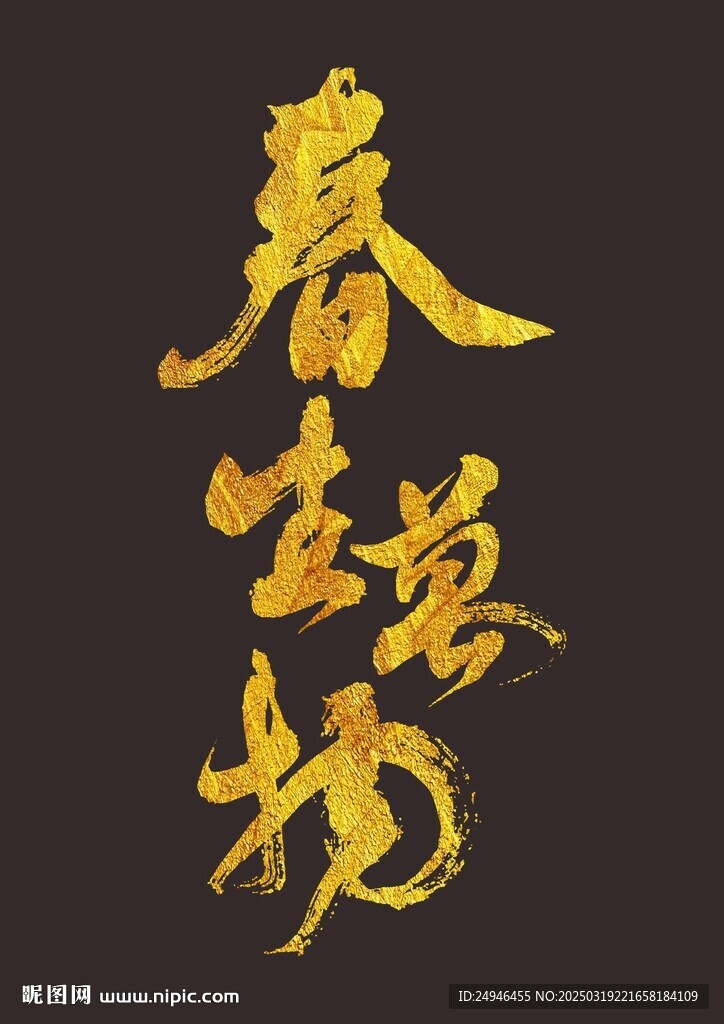 春
生萬
物
昵图网 www.nipic.com
ID:24946455 NO:20250319221658184109